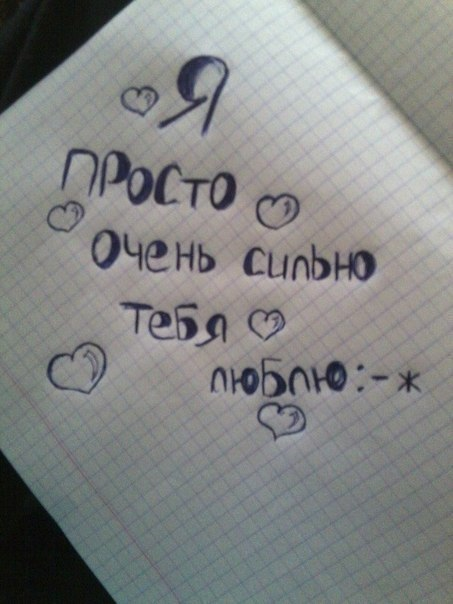 Я
ПРОСТО
Очень сильно
Тебя
люблю:-*